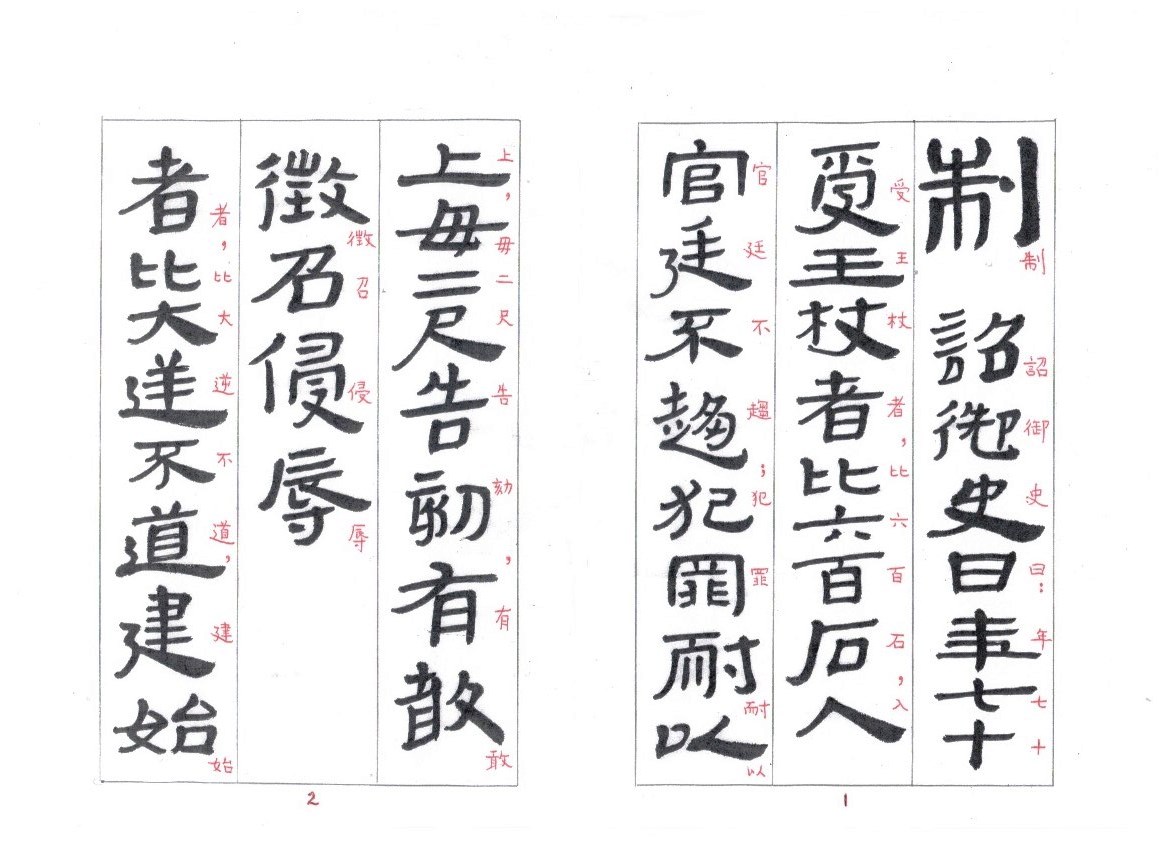 制 詔御史曰年七十
制詔御史曰：年七十
受王杖者比六百石入
受王杖者，比六百石，入
官廷不趨犯罪耐以
官廷不趨；犯罪耐以
1
上毋二尺告劾有敢
上，毋二尺告劾，有敢
徵召侵辱
徵召侵辱
者比大逆不道建始
者，比大逆不道，建始
2